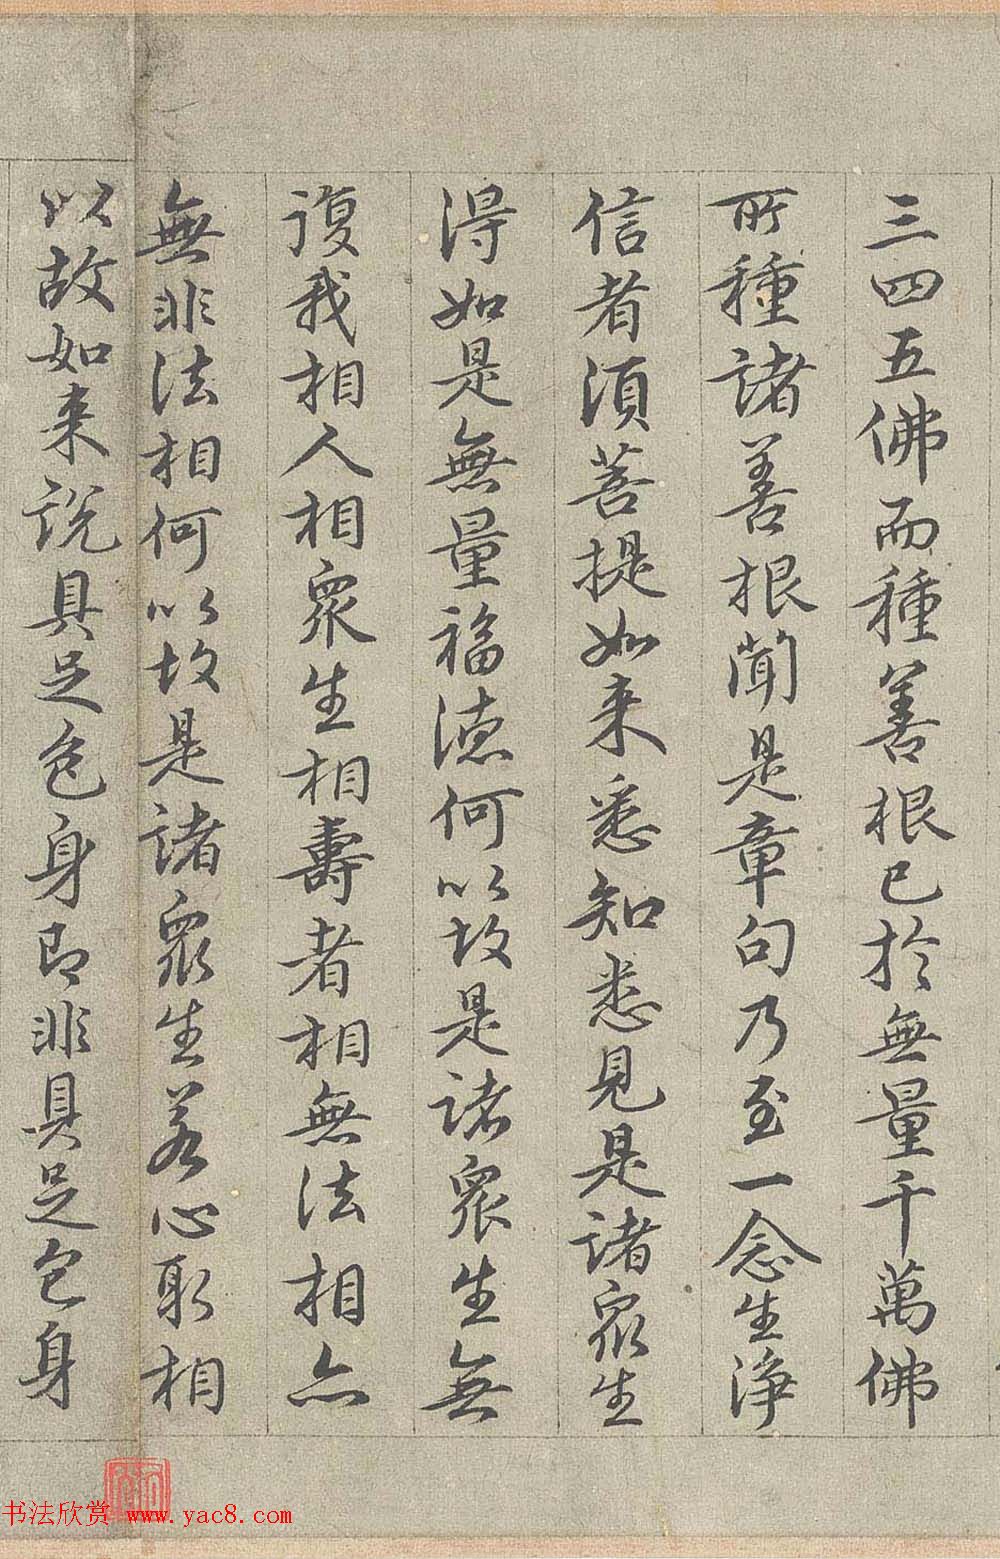 三四五佛而種善根已於無量千萬佛
所種諸善根聞是章句乃至一念生淨
信者須菩提如来悉知悉見是諸眾生
得如是無量福德何以故是諸眾生無
復我相人相眾生相壽者相無法相亦
無非法相何以故是諸眾生若心取相
以故如来説具足色身即非具足色身
书法欣赏 www.yac8.com